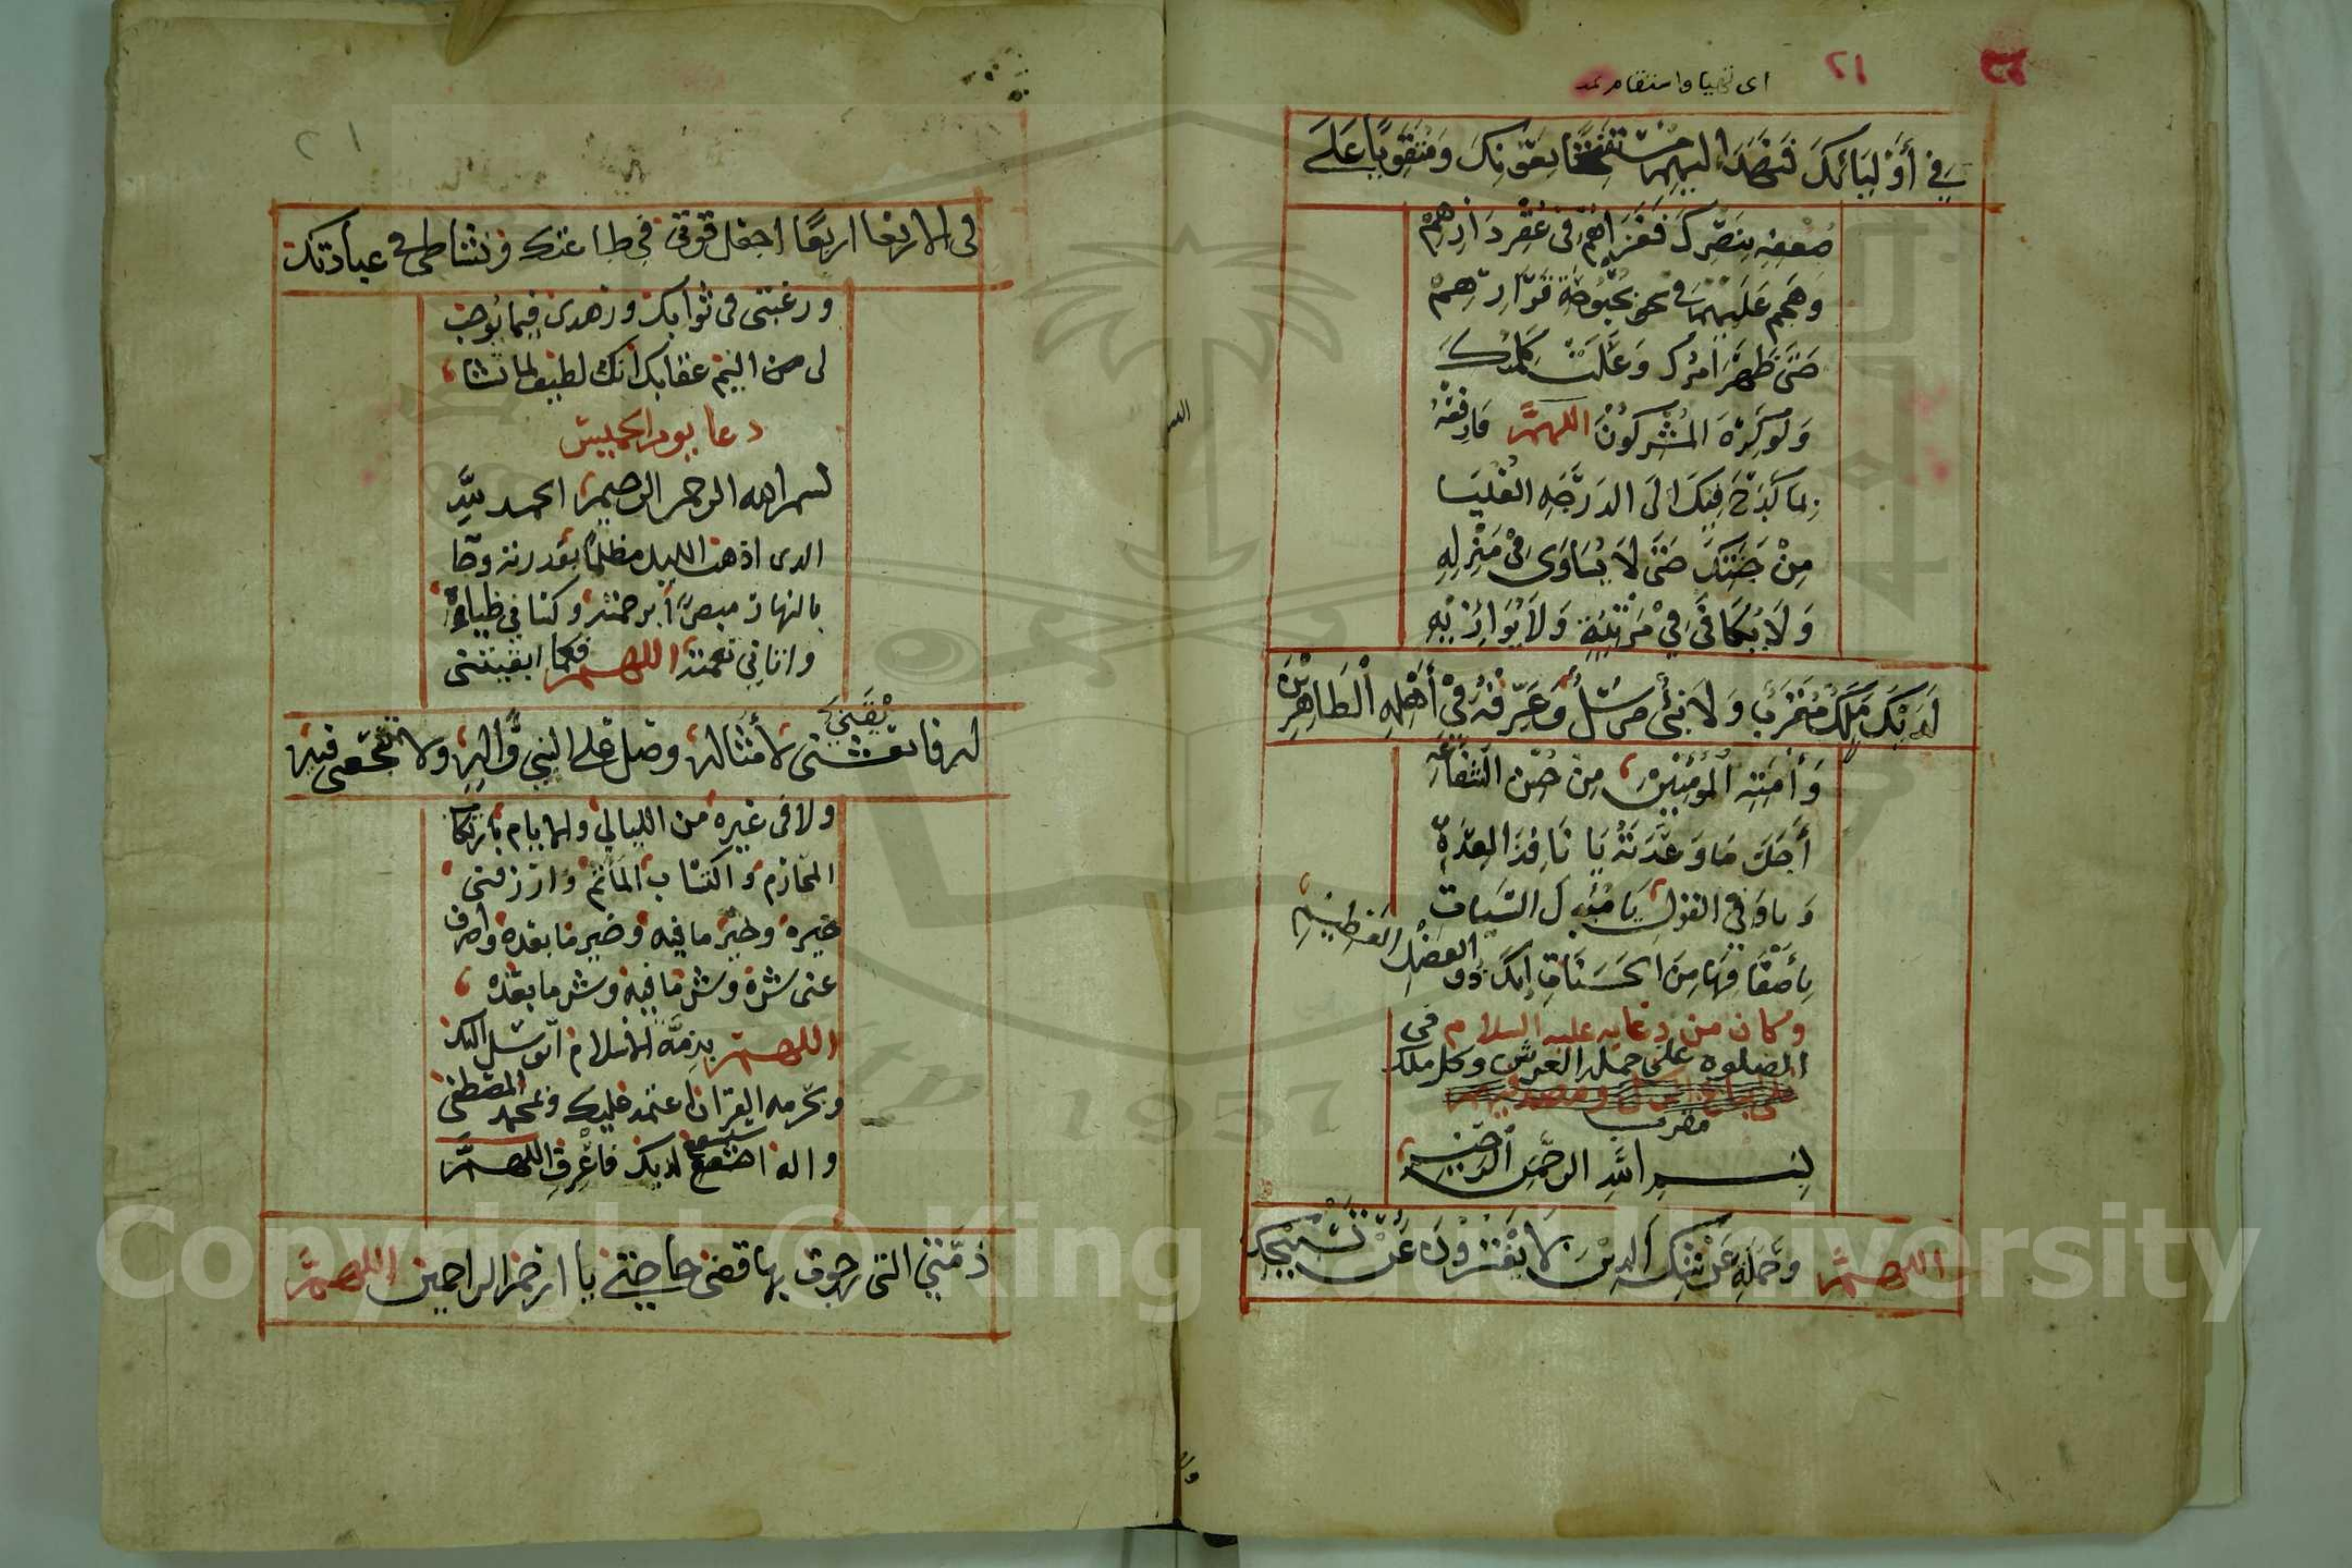 ٢١
اى تهيا واستقام تمد
في أَوْلِيَائِكَ فَنَهَدَ اليهم مُسْتَفْتِحًا بِعَوْنِكَ وَمُتَقَوِّيًا عَلَى
ضُعْفِهِ بِنَصْرِكَ فَغَزَاهُمْ فى عُقْرِ دَارِهِمْ
وَهَجَمَ عَلَيْهِمْ فى بُحْبُوحَةِ قَرَارِهِمْ
حَتَّى ظَهَرَ أَمْرُكَ وَعَلَتْ كَلِمَتُكَ
وَلَوْ كَرِهَ المُشْرِكُونَ اللهم فَارْفَعْهُ
بِمَا كَدَحَ فِيكَ الَى الدَرَجَةِ العُلْيَا
مِنْ جَنَّتِكَ حَتَّى لاَ يُسَاوَى فى مَنْزِلِهِ
وَلاَ يُكَافَى فِي مَرْتَبَةٍ وَلاَ يُوَازِيْهِ
لَدَيْكَ مَلَكٌ مُقَرَّبٌ وَلاَ نَبِىٌّ مُرْسَلٌ وَعَرِّفْهُ فِيْ أَهْلِهِ الْطَاهِرِيْنَ
وَأُمَّتِهِ الْمُؤْمِنِيْنَ مِنْ حُسْنِ الشَّفَاعَهِ
أَجَلَّ مَا وَعَدْتَهُ يَا نَافِذَ العِدَةِ
وَيا وَافِىَ القولِ يَا مُبَدِّلَ السَّيئاتِ
بِأَضْعَافِهَا مِنَ الحَسَنَاتِ إنكَ ذو الفضل العَظِيْمِ
وكان من دعايه عليه السلام فى
الصلوه على حمله العرش وكل ملك
مقرب
بِسْمِ اللَّهِ الرحمن الرحيم
اللهم وَحَمَلَةِ عَرْشِكَ الذِيْنَ لاَ يَفْتُرُونَ عَنْ تَسْبِيْحِكَ
٢١
فى الاربعا اربعًا اجعل قوتى في طاعتك ونشاطى فى عبادتك
ورغبتى فى ثوابك وزهدى فيما يوجب
لى من اليم عقابك انك لطيف لما تشا
دعا يوم الخميس
بسم الله الرحمن الرحيم الحمد للهِ
الدى اذهب الليل مظلمًا بقدرته وجا
بالنهار مبصرًا برحمته وكسانى ضياءه
واتانى نعمته اللهم فكما ابقيتنى
له فابقنى لأمثاله وصل على النبى وآله ولا تفجعنى فيه
ولا فى غيره من الليالى والايام بارتكا
المحارم واكتساب المآثم وارزقنى
خيره وخير ما فيه وخير ما بعده واصرف
عنى شره وشر ما فيه وشر ما بعده
اللهم بذمة الاسلام اتوسل اليك
وبحرمه القران اعتمد عليك وبمحمد المصطفى
واله استشفع لديك فاعرف اللهم
ذمتي التى رجوت بها قضى حاجتى يا ارحم الراحمين اللهم
Copyright © King Saud University
1957